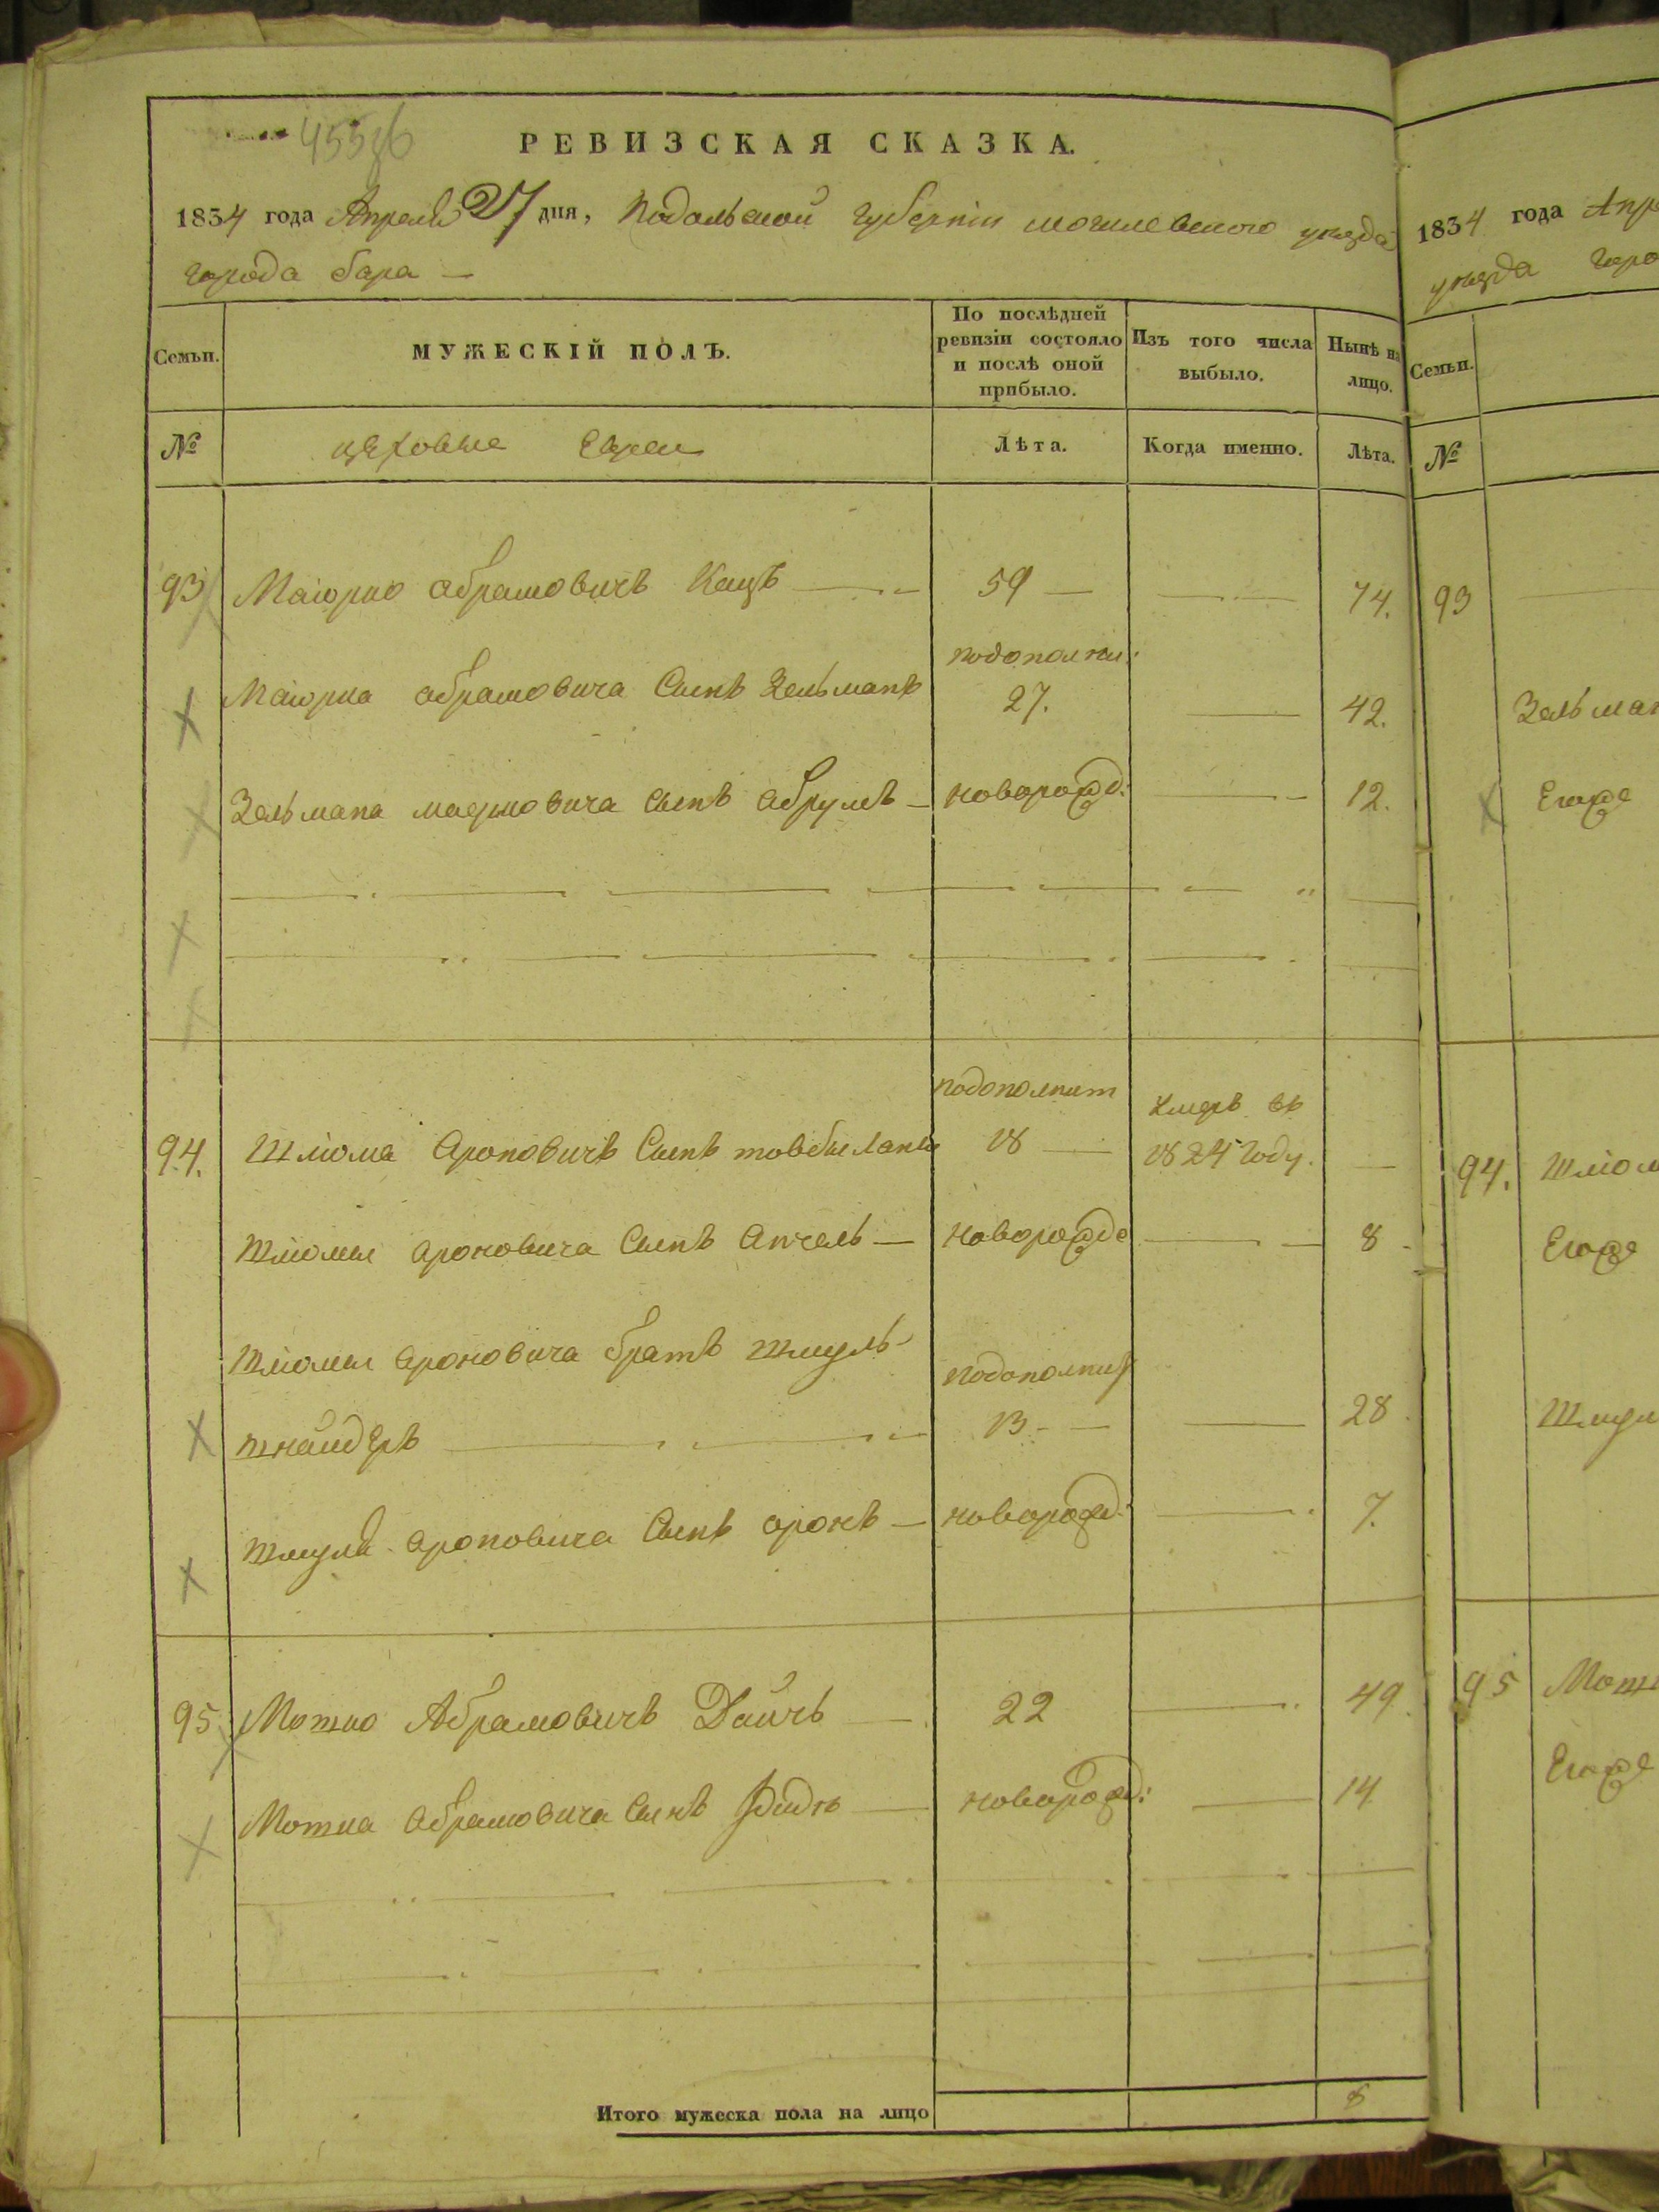 РЕВИЗСКАЯ СКАЗКА.
1834 года Апреля 27 дня, Подольской губернiи могилевского уезда
города бара —
Семьи.
МУЖЕСКIЙ ПОЛЪ.
По послѣдней ревизiи состояло и послѣ оной прибыло.
Изъ того числа выбыло.
Нынѣ на лицо.
№
цеховые Евреи
Лѣта.
Когда именно.
Лѣта.
93 Маiорко абрамовичъ Кацъ 59 — 74.
подополнит:
Маiорка абрамовича Сынъ Зельманъ 27. 42.
Зельмана маерковича сынъ абрумъ — новорожд. 12.
подополнит
Умеръ въ
94. Шлiома Ароновичъ Сынъ 18 — 1824 году. —
Шлiомы ароновича Сынъ Анчель — новорожде 8
Шлiомы ароновича братъ шмуль
подополнит
шнайдеръ 13 — 28
Шмуля ароновича Сынъ аронъ — новорожд: 7.
95 Мошко Абрамовичъ Дайчъ 22 49.
Мошка абрамовича сынъ новорожд: 14
Итого мужеска пола на лицо 8
1834 года Апре
уезда горо
Семьи.
№
93
Зельман
Егоже
94. Шлiом
Егоже
Шмул
95 Мошк
Егоже